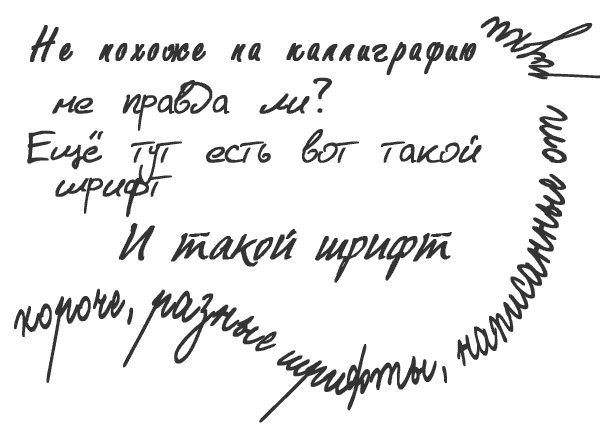 Не похоже на каллиграфию
не правда ли?
Ещё тут есть вот такой
шрифт
И такой шрифт
короче, разные шрифты, написанные от
руки